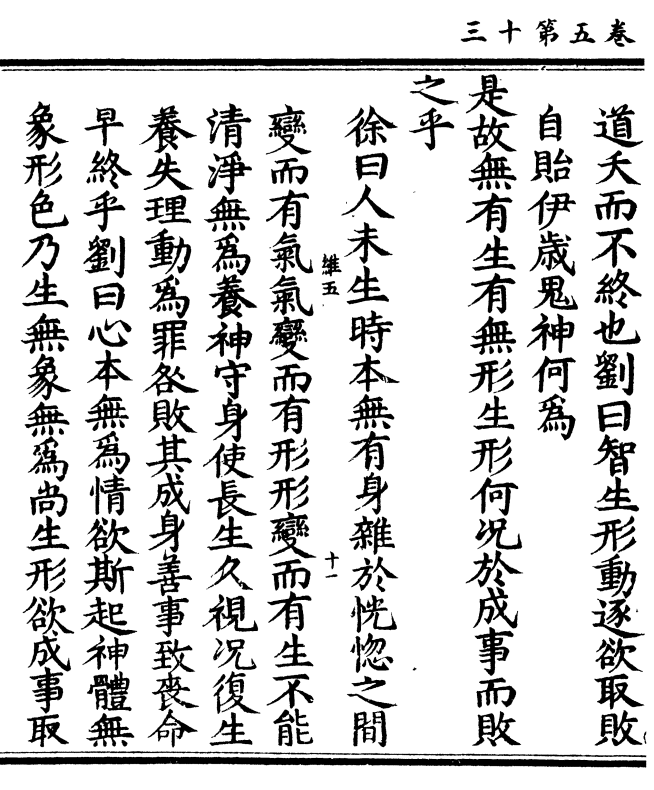 三十第五卷
道夭而不終也劉曰智生形動逐欲取敗
自貽伊歳鬼神何爲
是故無有生有無形生形何况於成事而敗
之乎
徐曰人未生時本無有身雜於恍惚之間
維五
變而有氣氣變而有形形變而有生不能
十一
清淨無爲養神守身使長生久視况復生
養失理動爲罪咎敗其成身善事致喪命
早終乎劉曰心本無爲情欲斯起神體無
象形色乃生無象無爲尚生形欲成事取